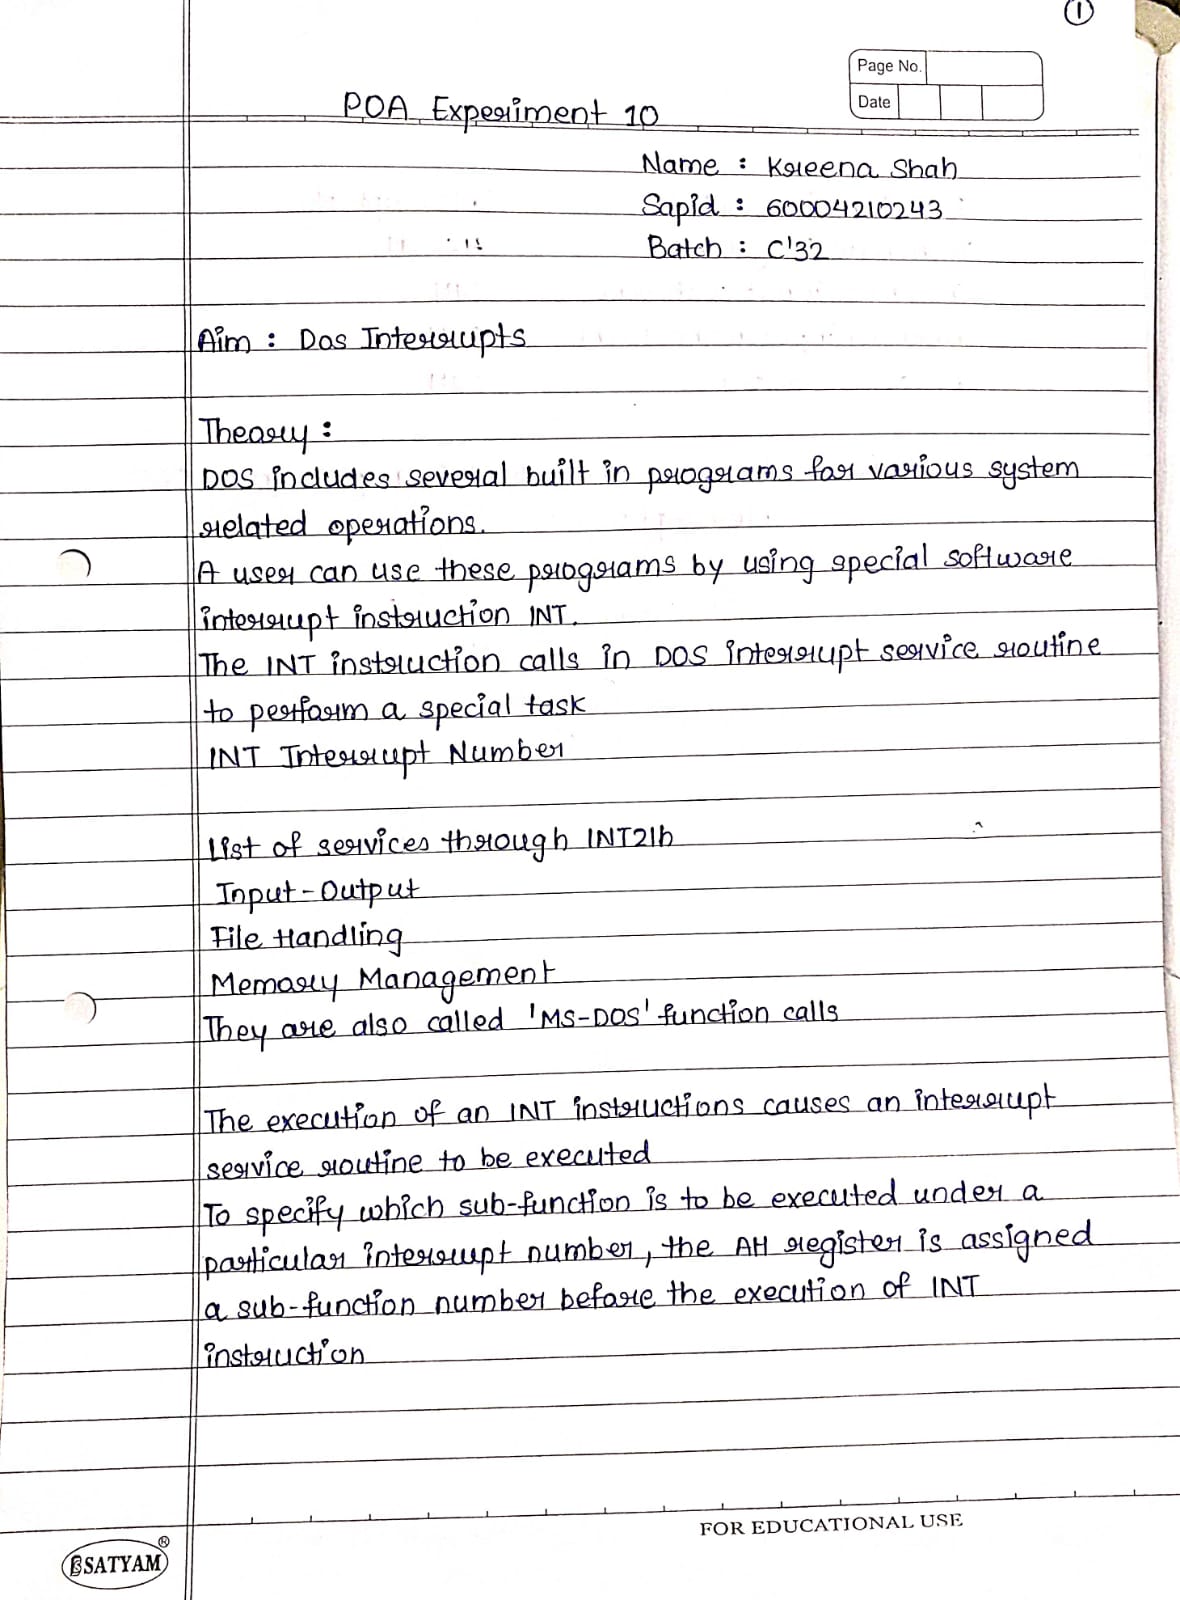 1
Page No.
Date
POA Experiment 10
Name : Kreena Shah
Sapid : 60004210243
Batch : C'32
Aim : Dos Interrupts
Theory :
DOS includes several built in programs for various system
related operations.
A user can use these programs by using special software
interrupt instruction INT.
The INT instruction calls in DOS interrupt service routine
to perform a special task
INT Interrupt Number
List of services through INT21h
Input-Output
File Handling
Memory Management
They are also called 'MS-DOS' function calls
The execution of an INT instructions causes an interrupt
service routine to be executed
To specify which sub-function is to be executed under a
particular interrupt number, the AH register is assigned
a sub-function number before the execution of INT
instruction
FOR EDUCATIONAL USE
SATYAM ®